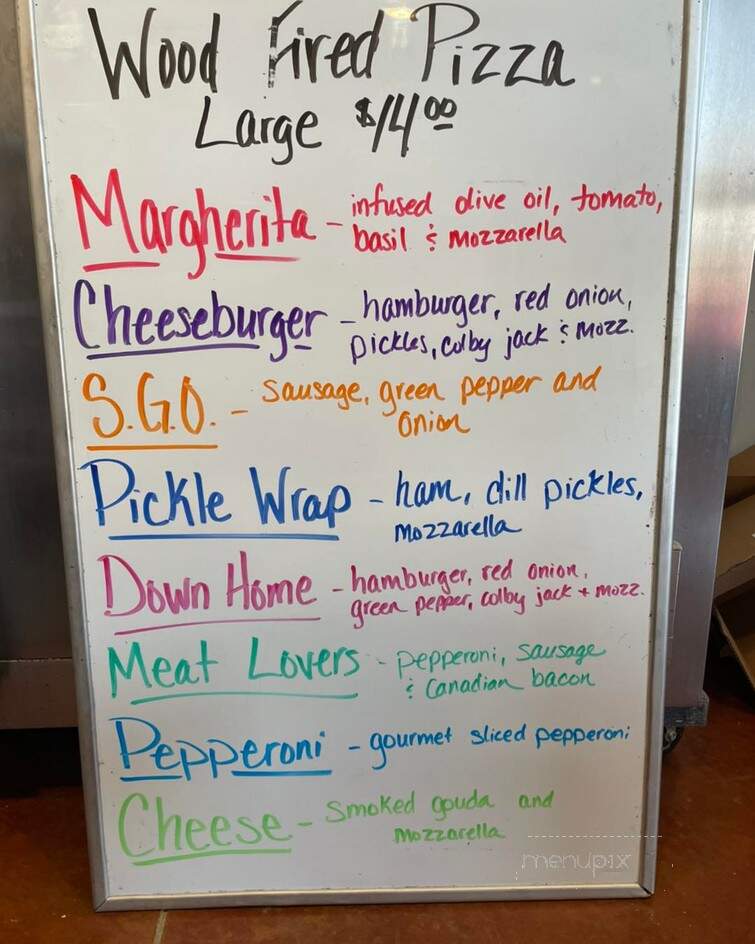 Wood Fired Pizza
Large $14.00
Margherita - infused olive oil, tomato,
basil & Mozzarella
Cheeseburger - hamburger, red onion,
pickles, colby jack & Mozz.
S.G.O. - Sausage, green pepper and
onion
Pickle Wrap - ham, dill pickles,
Mozzarella
Down Home - hamburger, red onion,
green pepper, colby jack + mozz.
Meat Lovers - pepperoni, sausage
& Canadian bacon
Pepperoni - gourmet sliced pepperoni
Cheese - Smoked gouda and
Mozzarella
menupix